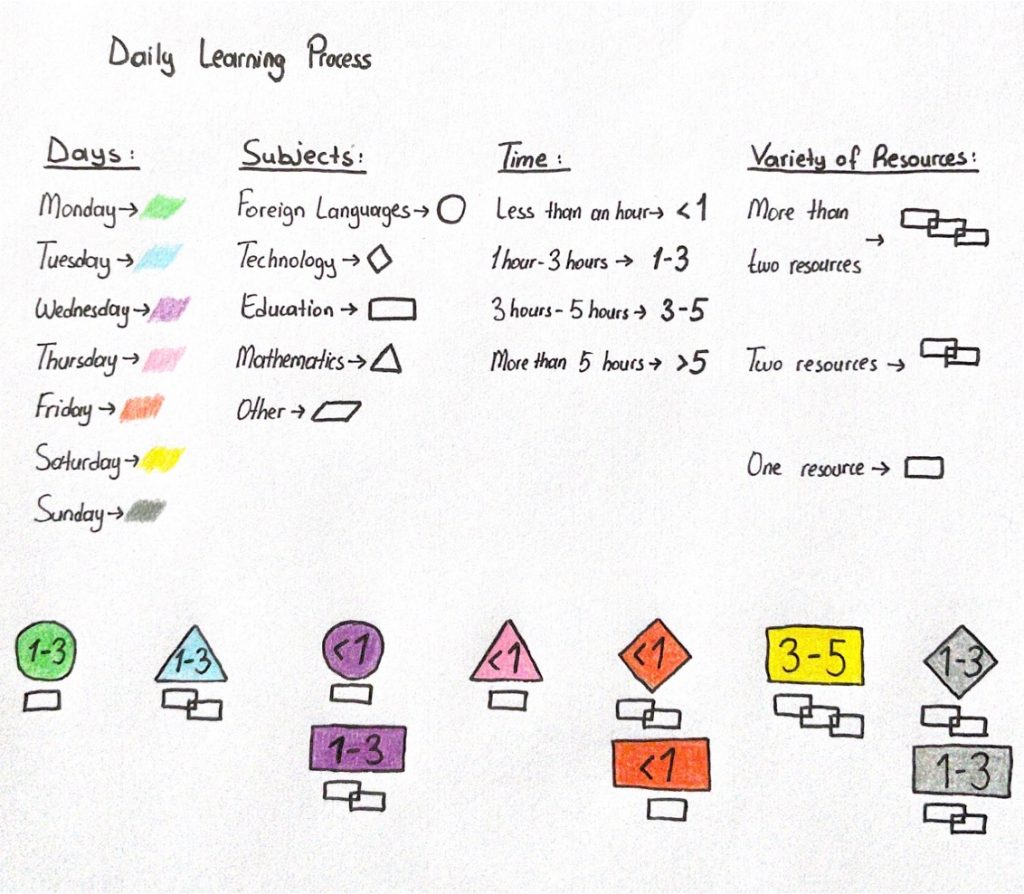 Daily Learning Process
Days:
Monday→
Tuesday→
Wednesday→
Thursday→
Friday→
Saturday→
Sunday→
Subjects:
Foreign Languages→
Technology→
Education→
Mathematics→
Other→
Time:
Less than an hour→ <1
1 hour-3 hours → 1-3
3 hours-5 hours→ 3-5
More than 5 hours→ >5
Variety of Resources:
More than →
two resources
Two resources →
One resource →
1-3
1-3
<1
<1
<1
3-5
1-3
1-3
<1
1-3